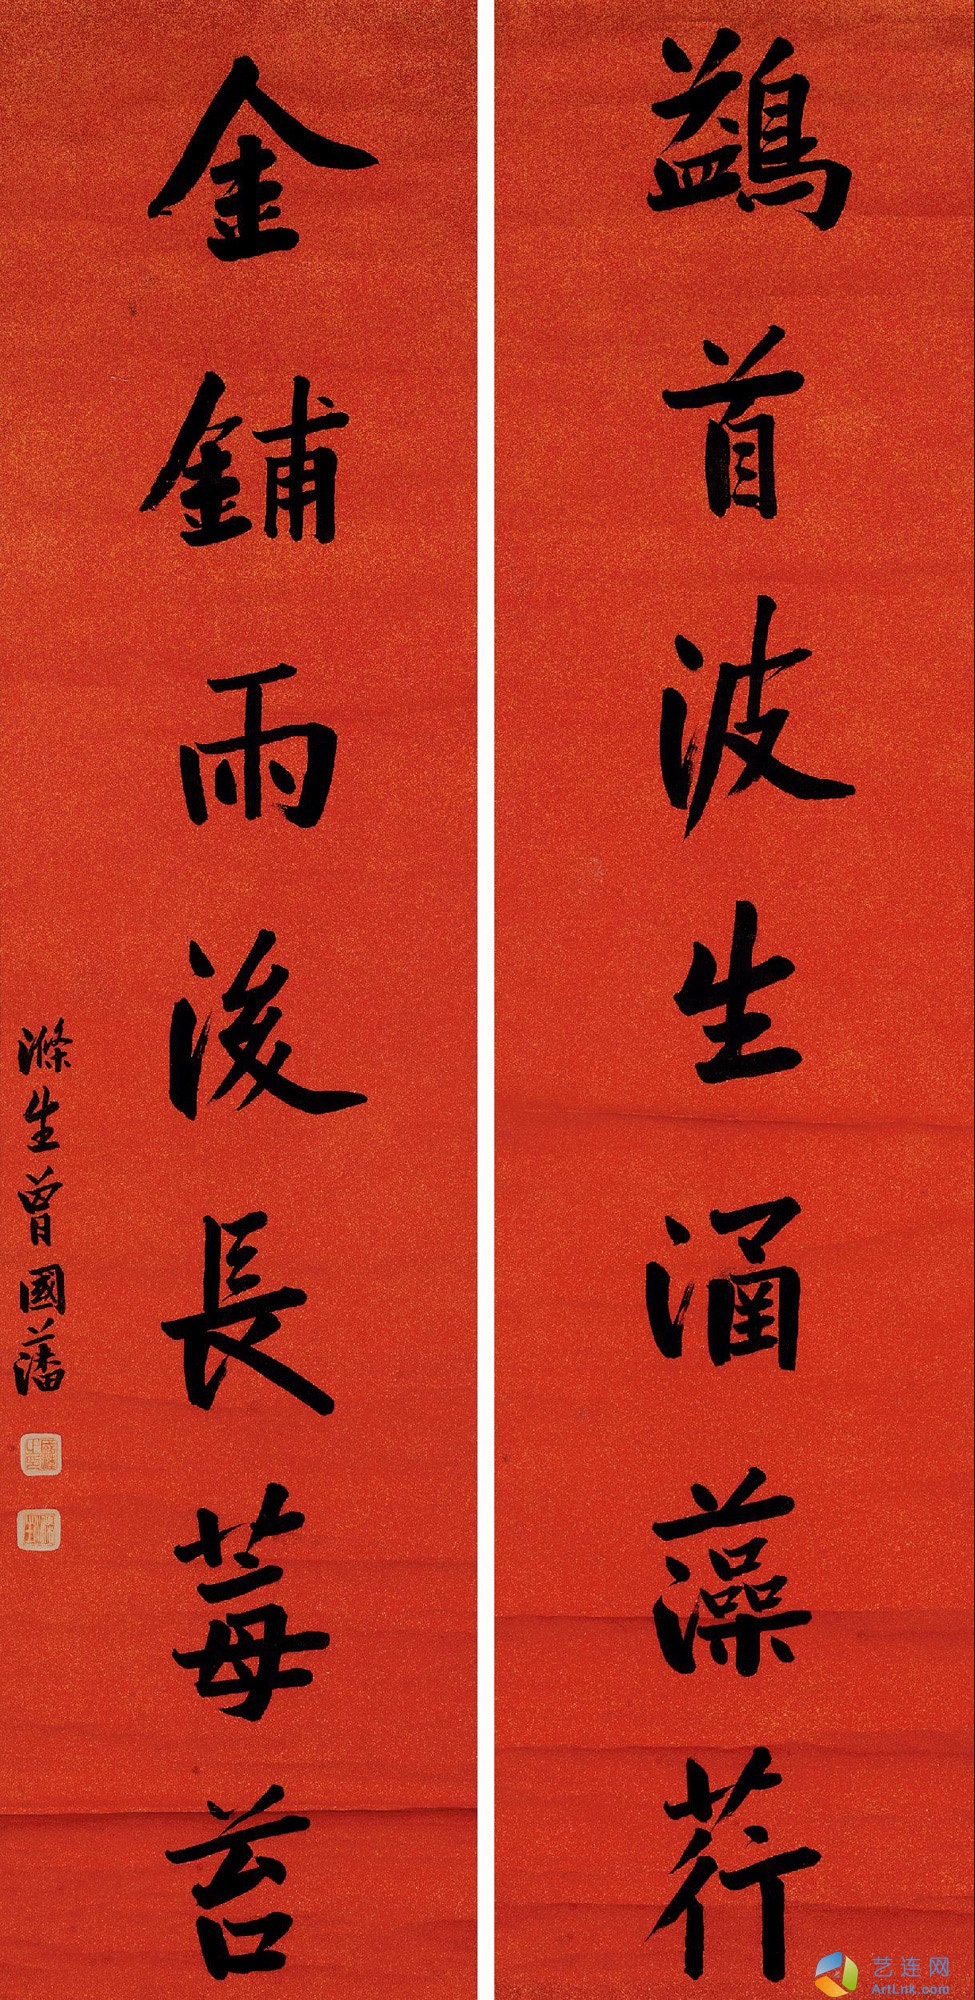 鷁首波生涵藻荇
金鋪雨後長莓苔
滌生曾國藩
艺连网
ArtLnk.com